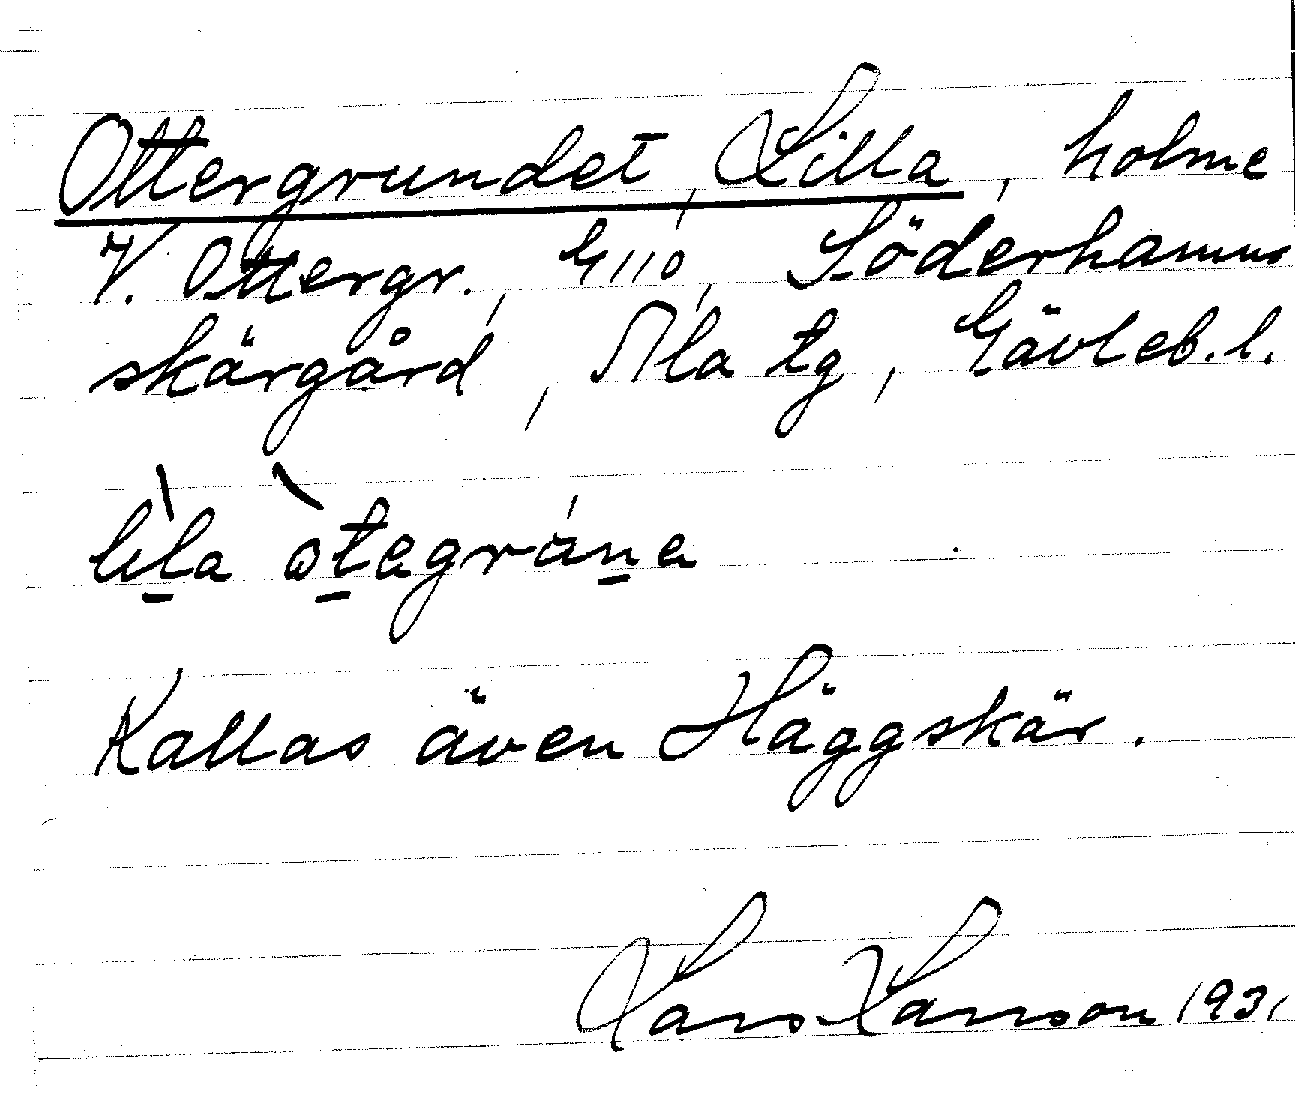 Ottergrundet, Lilla, holme
V. Ottergr., G110, Söderhamns
skärgård, Ala tg, Gävleb. l.
Kallas även Häggskär.
Lars Larsson 1931